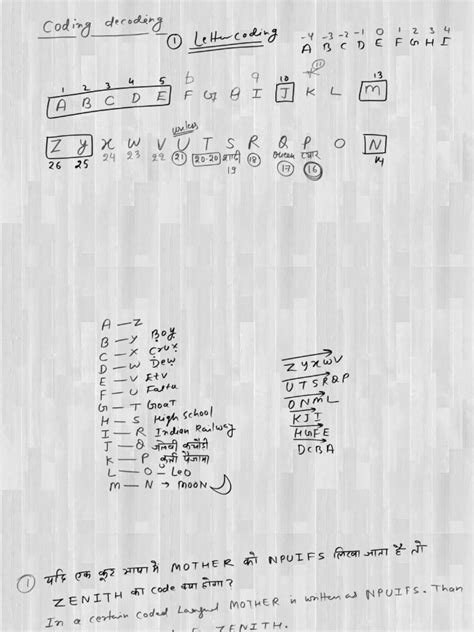 Coding decoding
① Letter coding
-4 -3 -2 -1 0 1 2 3 4
A B C D E F G H I
1 2 3 4 5 6 9 10 11 13
A B C D E F G H I J K L M
unlus
Z Y X W V U T S R Q P O N
26 25 24 23 22 21 20-20 शादी 18 Queen प्यार 14
19 17 16
A — Z
B — Y Boy
C — X Crux
D — W Dew
E — V Etv
F — U Fatta
G — T Goat
H — S High School
I — R Indian Railway
J — Q जलेबी कचौड़ी
K — P कुर्ता पैजामा
L — O — Leo
M — N → MOON
ZYXWV
UTSRQP
ONML
KJI
HGFE
DCBA
① यदि एक कूट भाषा में MOTHER को NPUIFS लिखा जाता है तो
ZENITH का code क्या होगा?
In a certain coded MOTHER is written as NPUIFS. Than
ZENITH.